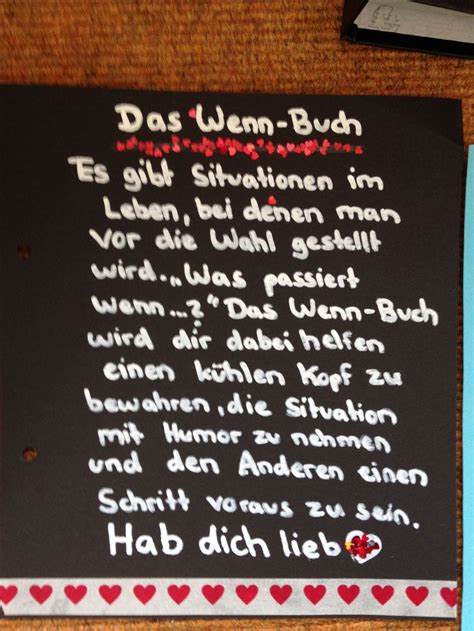 Das Wenn-Buch
Es gibt Situationen im
Leben, bei denen man
vor die Wahl gestellt
wird. „Was passiert
wenn...?" Das Wenn-Buch
wird dir dabei helfen
einen kühlen Kopf zu
bewahren, die Situation
mit Humor zu nehmen
und den Anderen einen
Schritt voraus zu sein.
Hab dich lieb